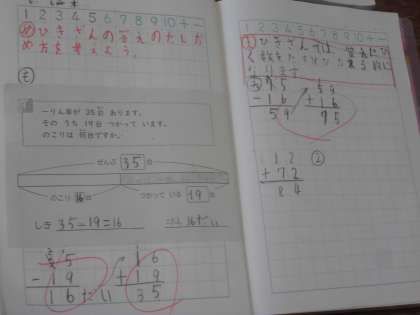 1 2 3 4 5 6 7 8 9 10 + −
め ひきざんの答えのたしか
め方を考えよう。
一りん車が 35台 あります。
その うち 19台 つかって います。
のこりは 何台ですか。
ぜんぶ 35台
のこり 16台 つかって いる 19台
しき 35−19=16
こたえ 16だい
35
−19
16だい
16
+19
35
1 2 3 4 5 6 7 8 9 10 + −
ひきざんでは 答えにひ
く数をたす
75
−16
59
59
+16
75
12 ②
+72
84